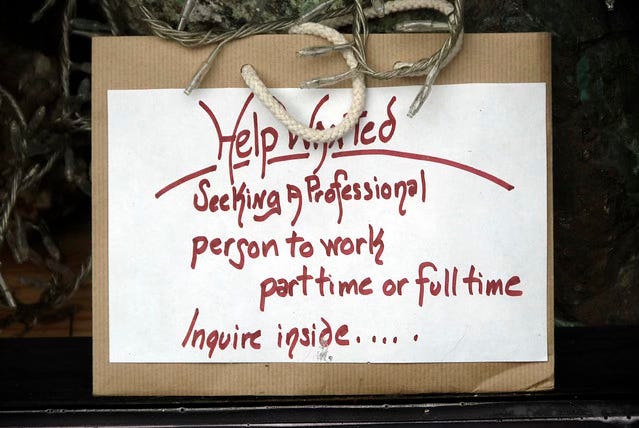 Help Wanted
Seeking A Professional
person to work
part time or full time
Inquire inside.....